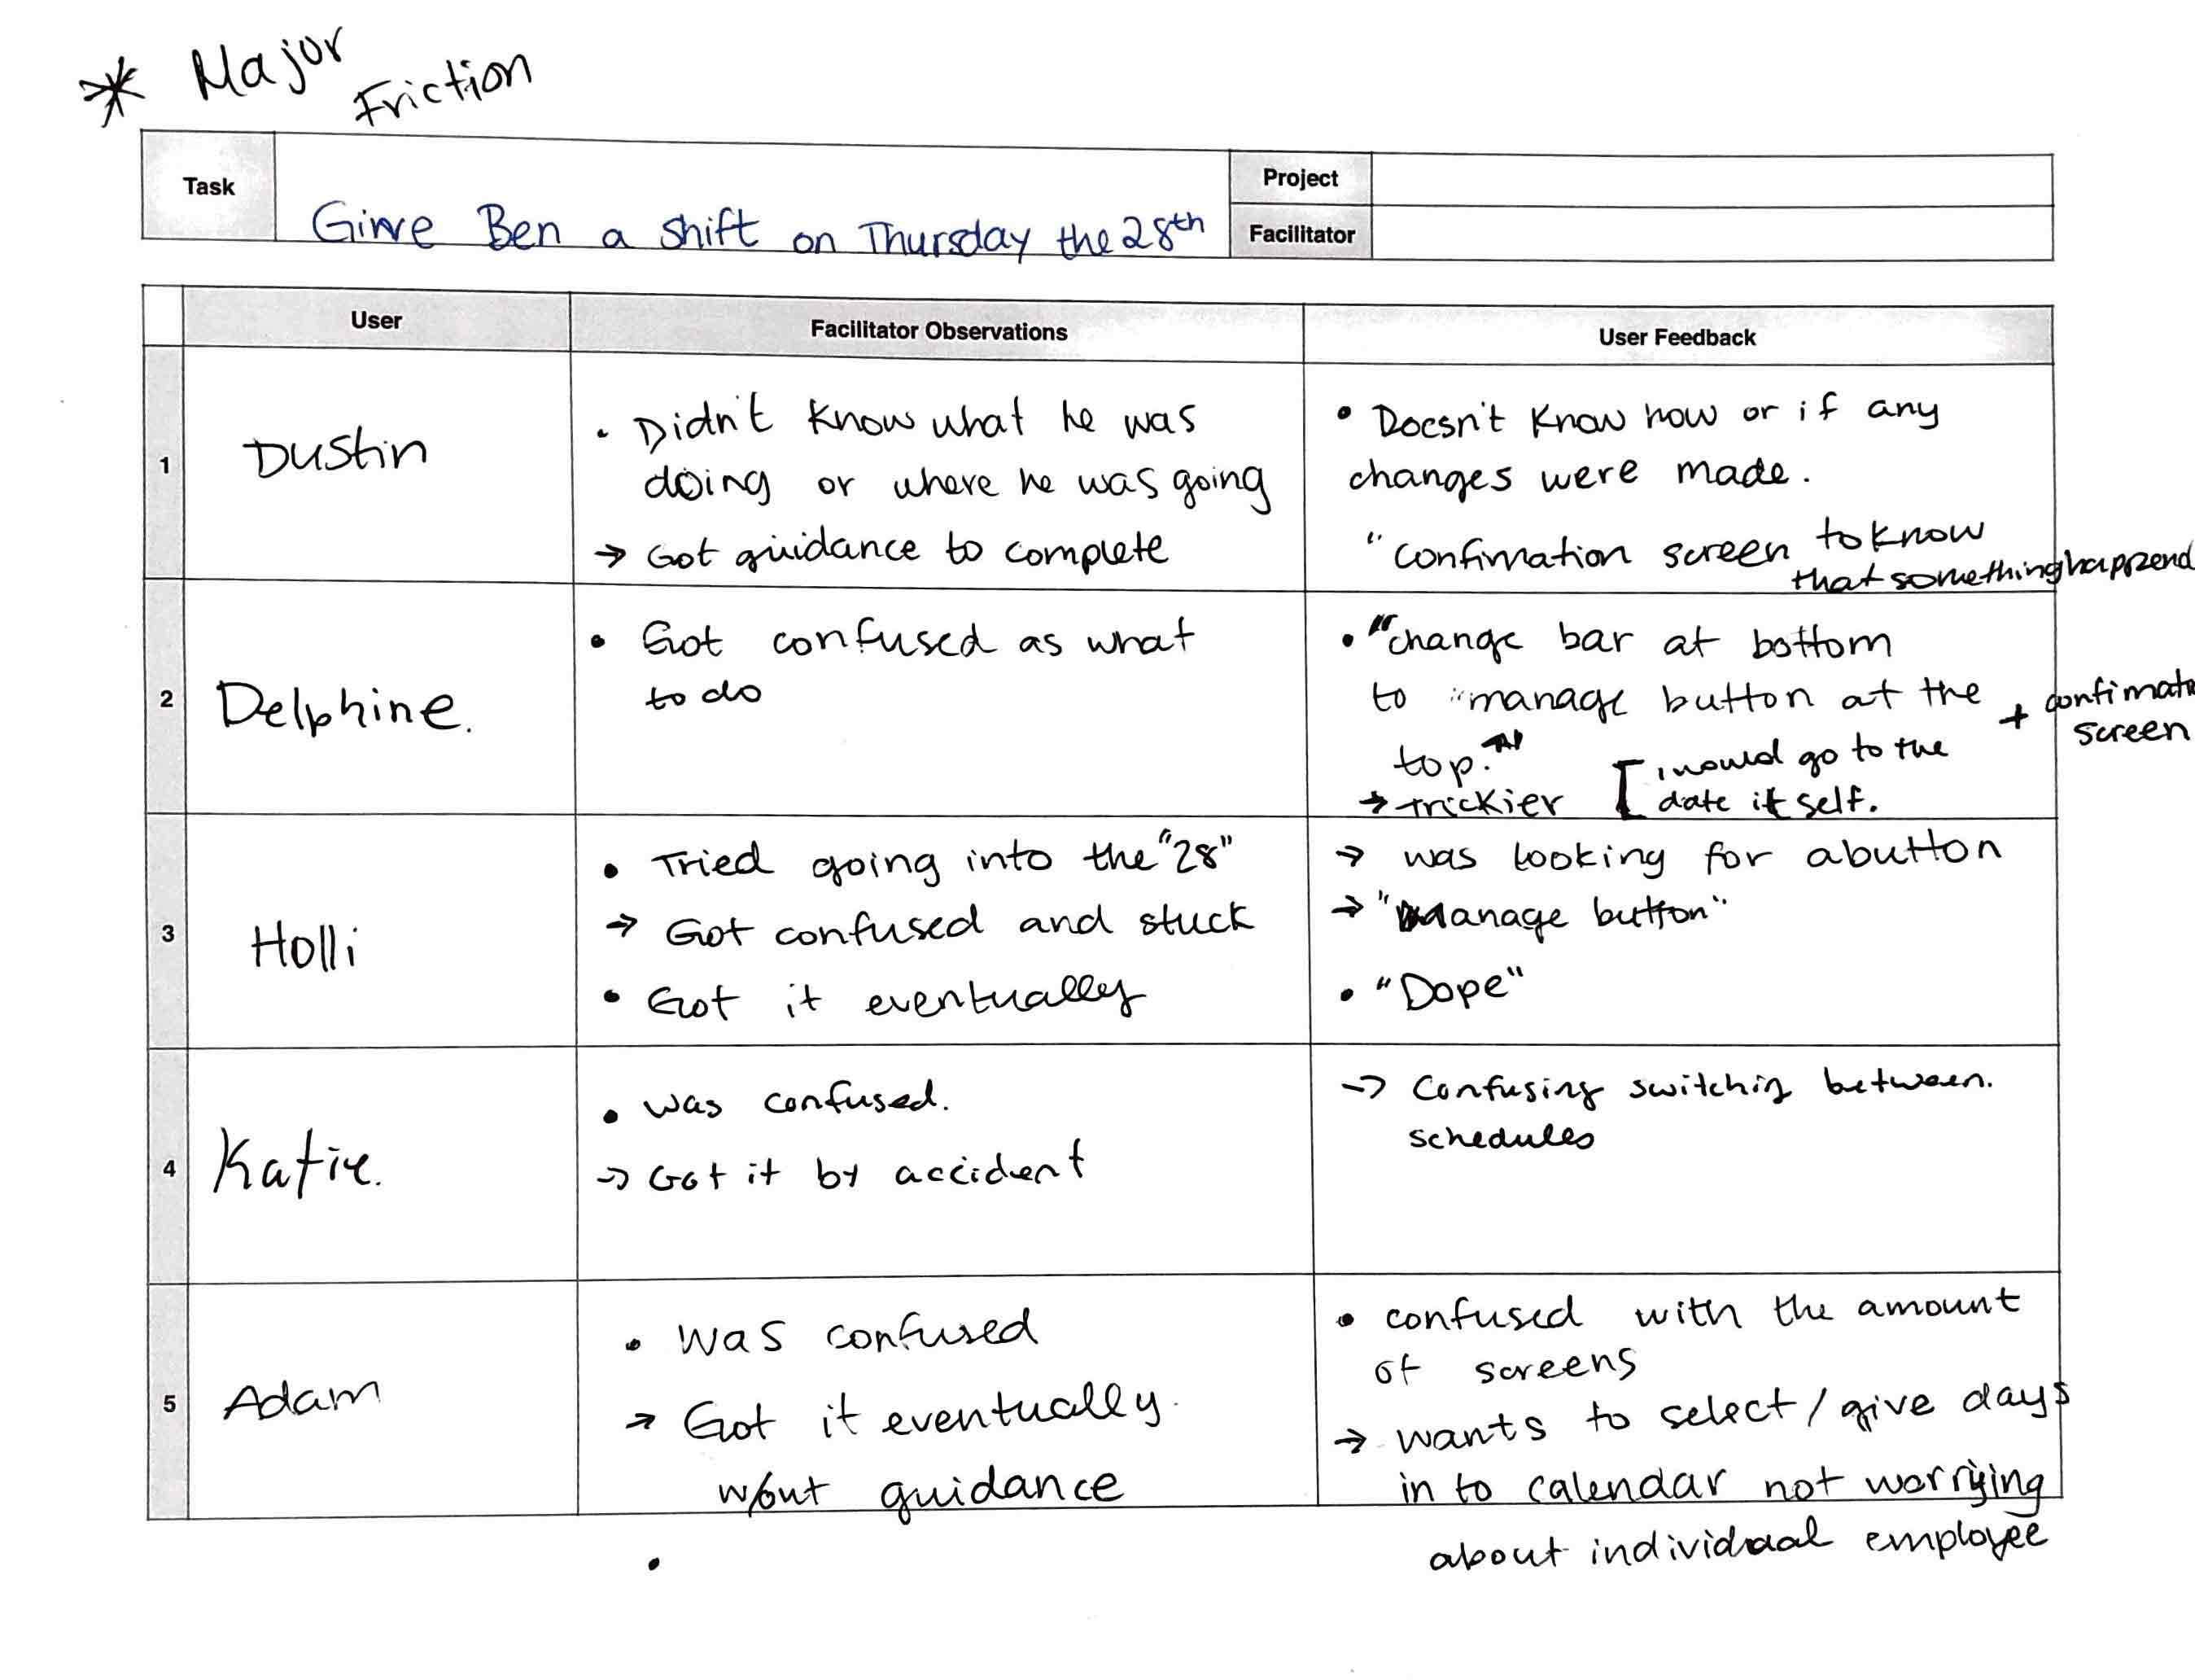 * Major
Friction
Task
Give Ben a shift on Thursday the 28th
Project
Facilitator
User
Facilitator Observations
User Feedback
1
Dustin
• Didn't know what he was
doing or where he was going
→ Got guidance to complete
• Doesn't know how or if any
changes were made.
"confirmation screen to know
that something happend
2
Delphine.
• Got confused as what
to do
• "change bar at bottom
to "manage button at the
top."
+ confimate
screen
→ trickier
[ I would go to the
date itself.
3
Holli
• Tried going into the "28"
→ Got confused and stuck
• Got it eventually
→ was looking for a button
→ "Manage button"
• "Dope"
4
Katie.
• was confused.
→ Got it by accident
→ Confusing switchig between.
schedules
5
Adam
• Was confused
→ Got it eventually.
w/out guidance
• confused with the amount
of screens
→ wants to select/give days
in to calendar not worrying
about individual employee
•